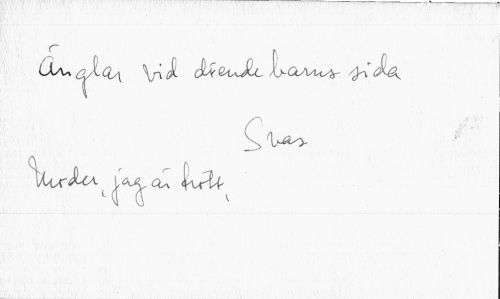 Änglar vid döende barns sida
Svas
Moder, jag är trött,